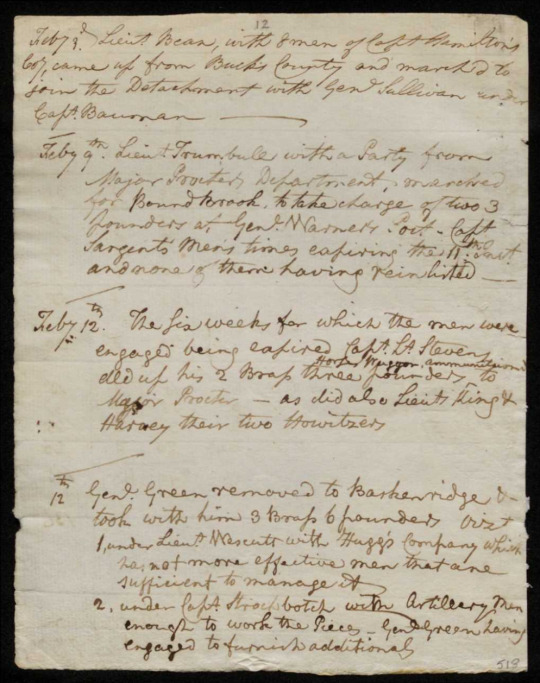 12
Feby 3d Lieut. Bean, with 8 men of Capt. Hamilton's
Coy, came up from Bucks County and march'd to
join the Detachment with Genl. Sullivan under
Capt. Bauman
Feby 9th. Lieut Trumbull with a Party from
Major Procters Department, marched
for Boundbrook, to take charge of two 3
pounders at Genl. Warners Post. - Capt
Sargents Mens times expiring the 11th Inst.
and none of them having reinlisted
Feby 12th. The Six weeks for which the men were
engaged being expired Capt. Lt. Stevens
Horses Waggon Ammunition and
ded up his 2 Brass three pounders to
Major Procter - as did also Lieuts King &
Harvey their two Howitzers
12th Genl. Green removed to Baskenridge &
took with him 3 Brass 6 pounders vizt
1, under Lieut. Wescutt with Huggs Company which
has not more effective men than are
sufficient to manage it
2, under Capt. with Artillery Men
enough to work the Pieces - Genl. Green having
engaged to furnish additional
519